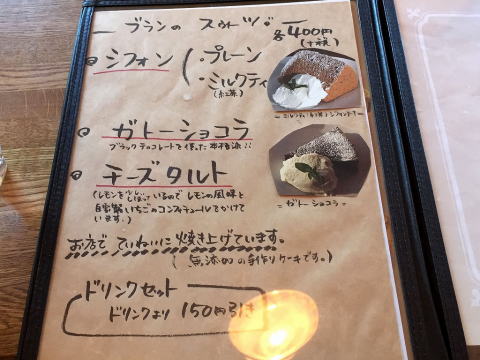 ブランの スウィーツ
各400円
(+税)
シフォン
・プレーン
・ミルクティ
(紅茶)
ガトーショコラ
ブラックチョコレートを使った本格派!!
チーズタルト
(レモンを少ししぼっているので レモンの風味と
自家製いちごのコンフィチュールをかけて
います。)
= ガトーショコラ =
お店で ていねいに 焼き上げています。
(無添加の手作りケーキです。)
ドリンクセット
ドリンクより 150円引き